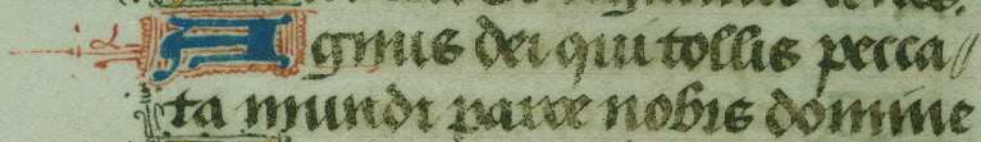 Agnus dei qui tollis pecca//
ta mundi parce nobis domine